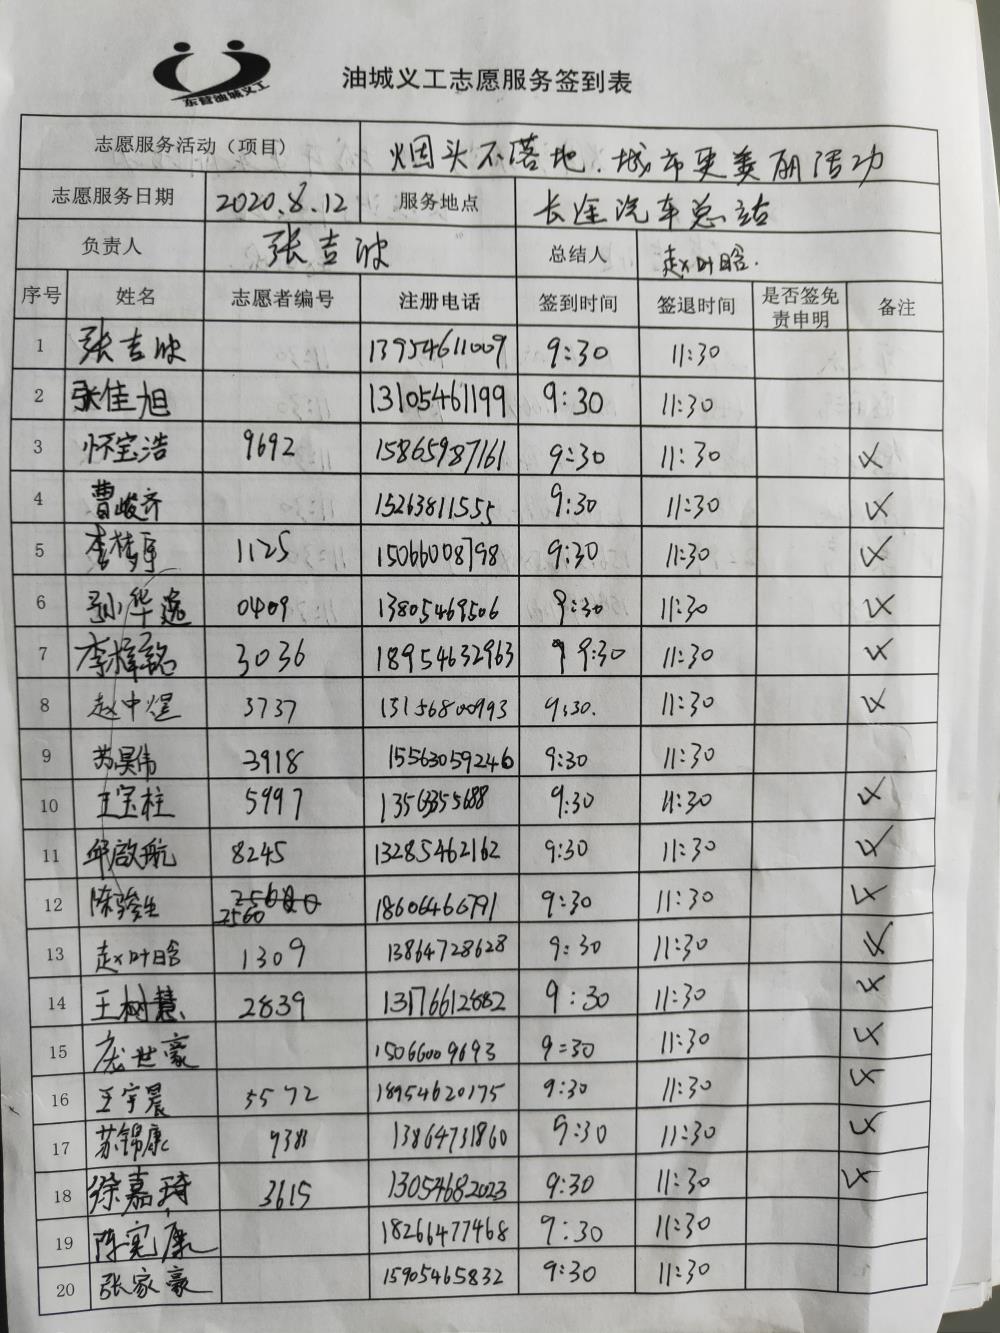 东营油城义工
油城义工志愿服务签到表
志愿服务活动（项目） 烟头不落地、城市更美丽活动
志愿服务日期 2020.8.12 服务地点 长途汽车总站
负责人 张吉波 总结人 赵叶晗.
序号 姓名 志愿者编号 注册电话 签到时间 签退时间 是否签免责申明 备注
1 张吉波 13954611009 9:30 11:30
2 张佳旭 13105461199 9:30 11:30
3 怀宝浩 9692 15865987161 9:30 11:30
4 曹峻齐 15263811555 9:30 11:30
5 李梦 1125 15066008798 9:30 11:30
6 孙华逸 0409 13805469506 9:30 11:30
7 李梓铭 3036 18954632963 9:30 11:30
8 赵中煜 3737 13156800993 9:30. 11:30
9 苏昊伟 3918 15563059246 9:30 11:30
10 王宝柱 5997 13563355688 9:30 11:30
11 邱啟航 8245 13285462162 9:30 11:30
12 陈 2560 18606466791 9:30 11:30
13 赵叶晗 1309 13864728628 9:30 11:30
14 王树慧 2839 13176612882 9:30 11:30
15 庞世豪 15066009693 9:30 11:30
16 王宇晨 5572 18954620175 9:30 11:30
17 苏锦康 9388 13864731860 9:30 11:30
18 徐嘉琦 3615 13054682023 9:30 11:30
19 陈宪康 18266477468 9:30 11:30
20 张家豪 15905465832 9:30 11:30